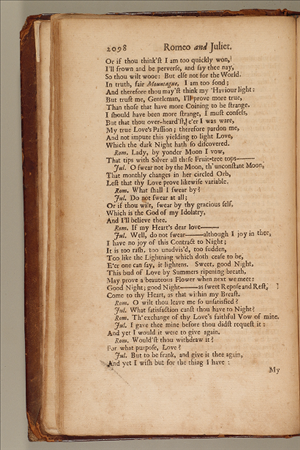 2098 Romeo and Juliet.
Or if thou think'st I am too quickly won,
I'll frown and be perverse, and say thee nay,
So thou wilt wooe: But else not for the World.
In truth, fair Mountague, I am too fond;
And therefore thou may'st think my 'Haviour light:
But trust me, Gentleman, I'll prove more true,
Than those that have more Coining to be strange.
I should have been more strange, I must confess,
But that thou over-heard'st, e'er I was ware,
My true Love's Passion; therefore pardon me,
And not impute this yielding to light Love,
Which the dark Night hath so discovered.
Rom. Lady, by yonder Moon I vow,
That tips with Silver all these Fruit-tree tops——
Jul. O swear not by the Moon, th' unconstant Moon,
That monthly changes in her circled Orb,
Lest that thy Love prove likewise variable.
Rom. What shall I swear by?
Jul. Do not swear at all;
Or if thou wilt, swear by thy gracious self,
Which is the God of my Idolatry,
And I'll believe thee.
Rom. If my Heart's dear love——
Jul. Well, do not swear——although I joy in thee,
I have no joy of this Contract to Night;
It is too rash, too unadvis'd, too sudden,
Too like the Lightning which doth cease to be,
E'er one can say, it lightens. Sweet, good Night.
This bud of Love by Summers ripening breath,
May prove a beauteous Flower when next we meet:
Good Night; good Night——as sweet Repose and Rest,
Come to thy Heart, as that within my Breast.
Rom. O wilt thou leave me so unsatisfied?
Jul. What satisfaction can'st thou have to Night?
Rom. Th' exchange of thy Love's faithful Vow of mine.
Jul. I gave thee mine before thou didst request it:
And yet I would it were to give again.
Rom. Would'st thou withdraw it?
For what purpose, Love?
Jul. But to be frank, and give it thee again,
And yet I wish but for the thing I have:
My